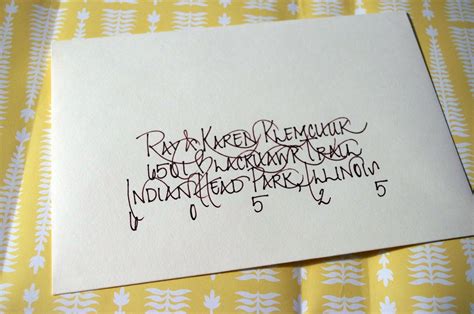 Ray & Karen Klemchuk
6501 Blackhawk Trail
Indian Head Park, Illinois
6 0 5 2 5